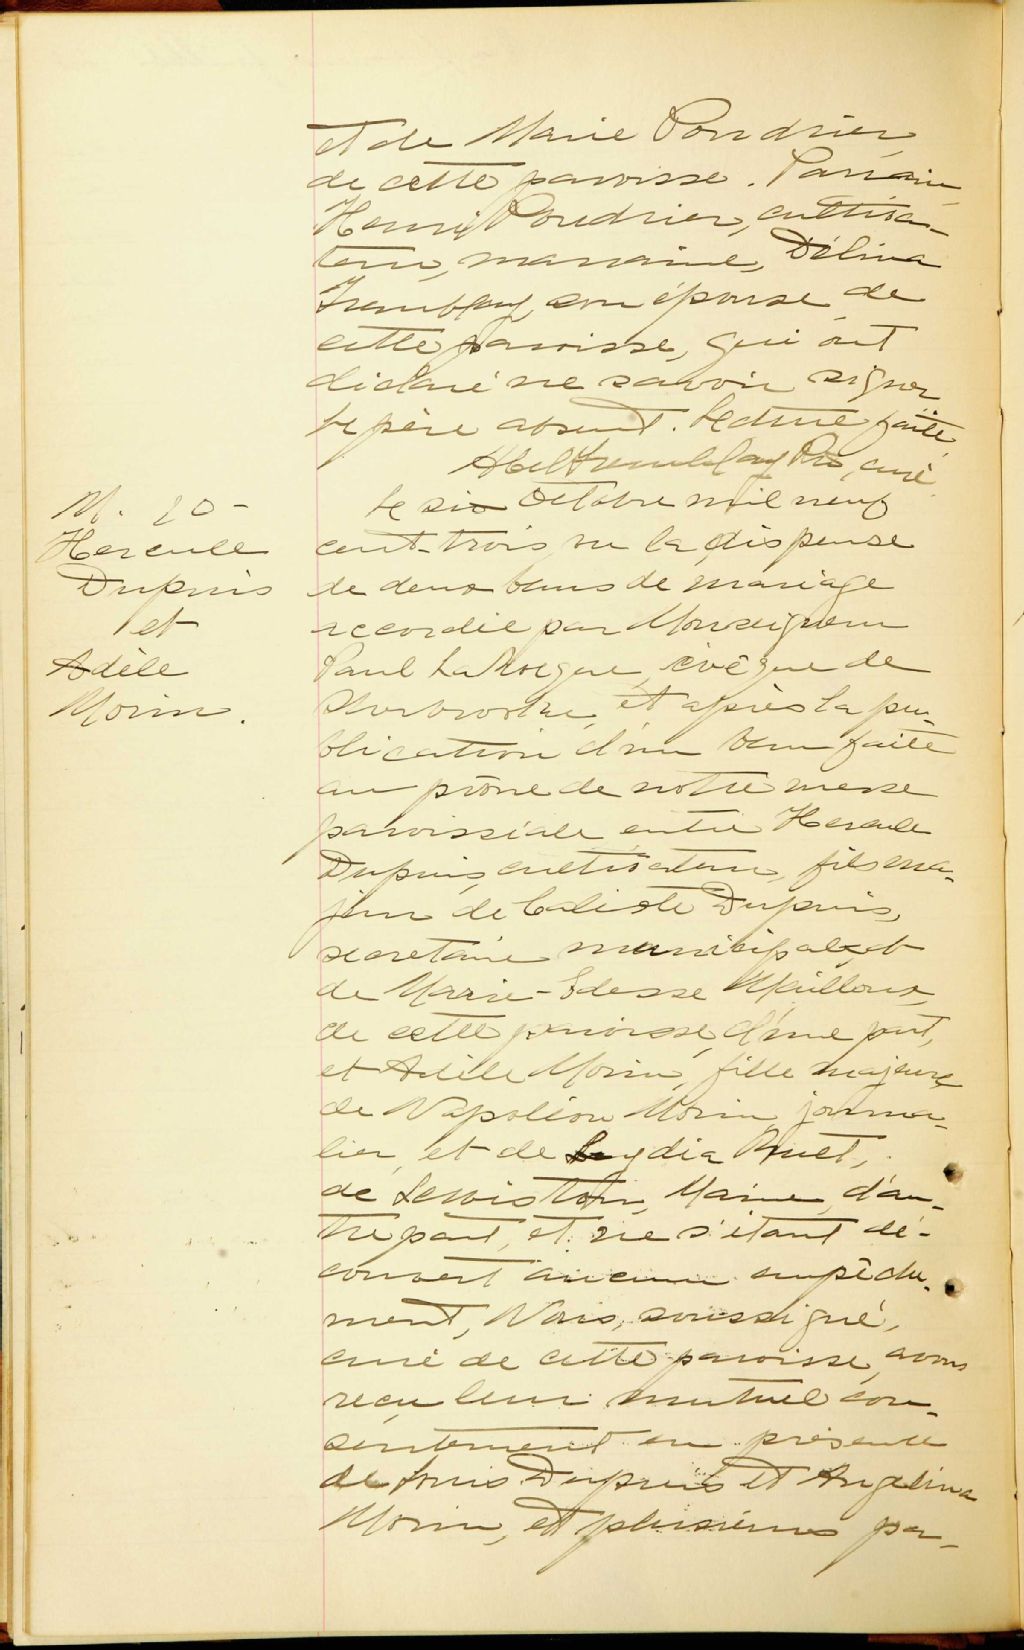 et de Marie Poudrier,
de cette paroisse. Parrain,
Henri Poudrier, cultiva-
teur, marraine, Délina
Tremblay, son épouse, de
cette paroisse, qui ont
déclaré ne savoir signer
le père absent. Lecture faite,
Abel Tremblay Ptr, curé
M. 20-
Hercule
Dupuis
et
Adèle
Morin.
Le six Octobre mil neuf
cent-trois, vu la dispense
de deux bans de mariage
accordée par Monseigneur
Paul LaRocque, évêque de
Sherbrooke, et après la pu-
blication d'un ban faite
au prône de notre messe
paroissiale, entre Hercule
Dupuis, cultivateur, fils ma-
jeur de Calixte Dupuis,
secretaire municipal, et
de Marie-Edesse Mailloux,
de cette paroisse, d'une part,
et Adèle Morin, fille majeure
de Napoléon Morin, journa-
lier, et de Leydia Ruel,
de Lewiston, Maine, d'au-
tre part, et ne s'étant dé-
couvert aucun empêche-
ment, Nous, soussigné,
curé de cette paroisse, avons
reçu leur mutuel con-
sentement en présence
de Louis Dupuis et Angelina
Morin, et plusieurs pa-